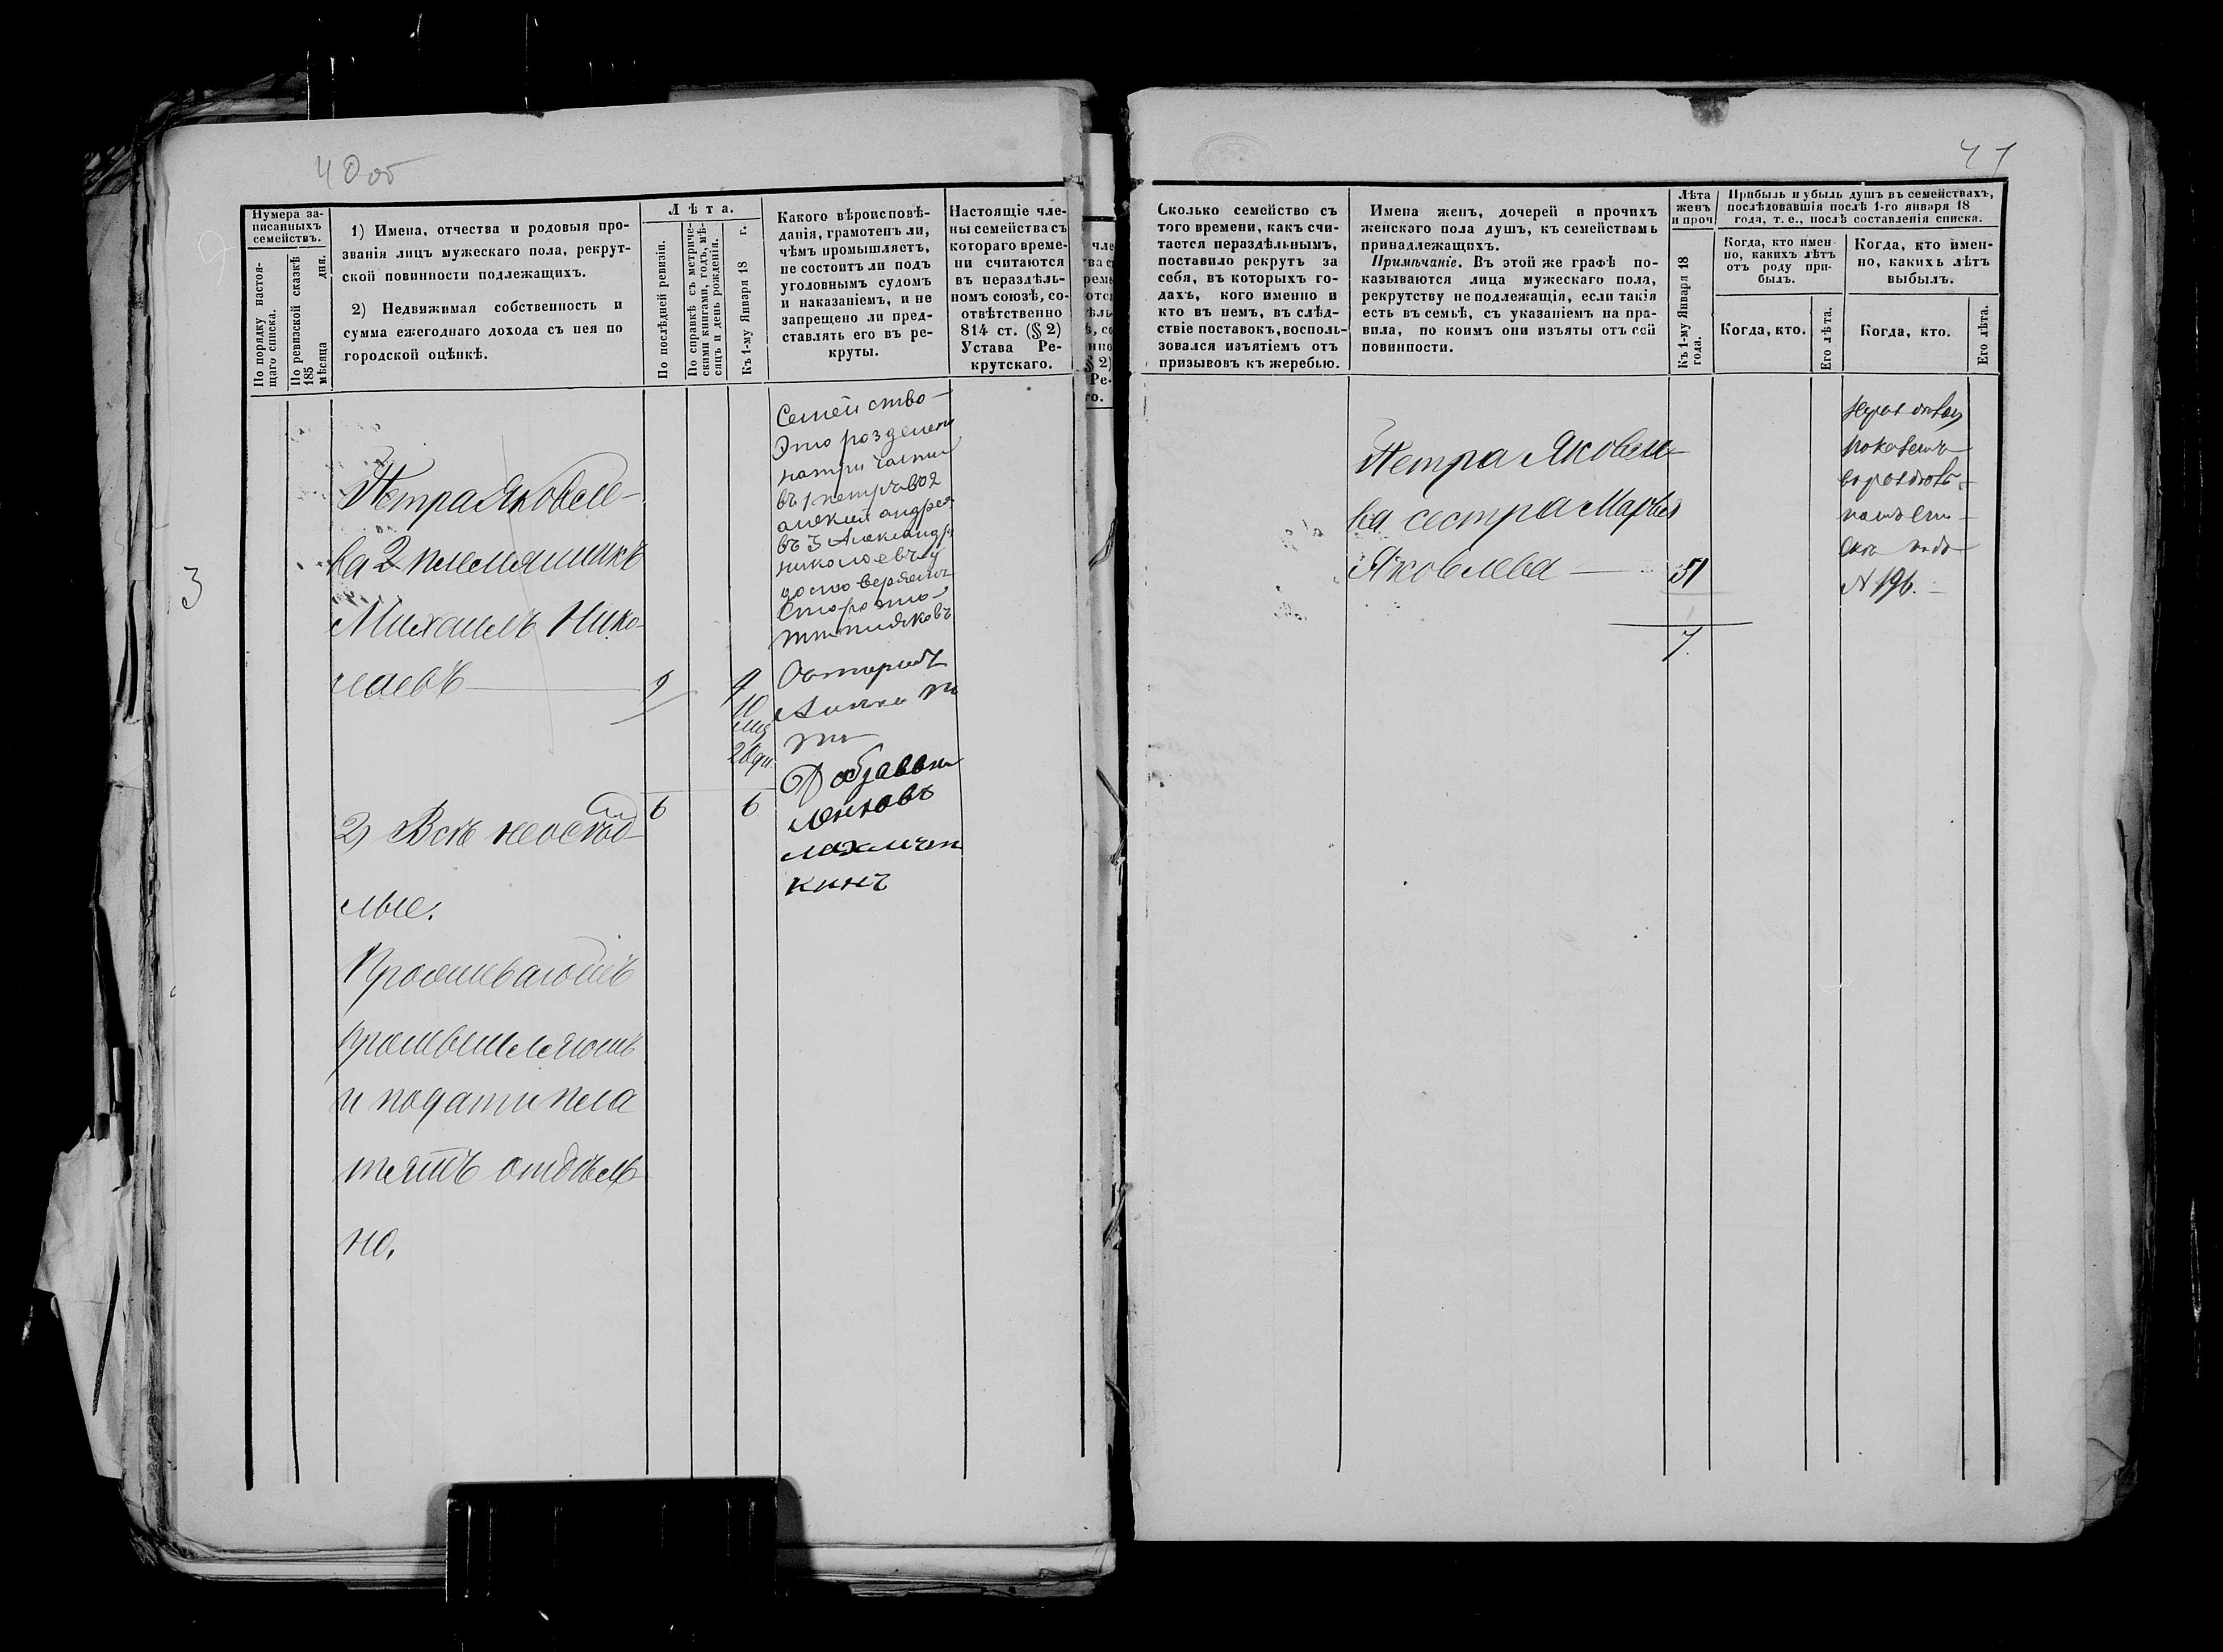 40об
41
Нумера за-
писанныхъ
семействъ.
По порядку настоя-
щаго списка.
По ревизской сказкѣ
185 дня.
мѣсяца
1) Имена, отчества и родовыя про-
званія лицъ мужескаго пола, рекрут-
ской повинности подлежащихъ.
2) Недвижимая собственность и
сумма ежегоднаго дохода съ нея по
городской оцѣнкѣ.
Лѣта.
По послѣдней ревизіи.
По справкѣ съ метриче-
скими книгами, годъ, мѣ-
сяцъ и день рожденія.
Къ 1-му Января 18 г.
Какого вѣроисповѣ-
данія, грамотенъ ли,
чѣмъ промышляетъ,
не состоитъ ли подъ
уголовнымъ судомъ
и наказаніемъ, и не
запрещено ли пред-
ставлять его въ ре-
круты.
Настоящіе чле-
ны семейства съ
котораго време-
ни считаются
въ нераздѣль-
номъ союзѣ, со-
отвѣтственно
814 ст. (§ 2)
Устава Ре-
крутскаго.
3
Петра Яковле-
ва 2 племянникъ
Михаилъ Нико-
лаевъ 9 9
10
мц
20 дн
6 6
2) Всѣ
лые.
Проживаютъ
промышляютъ
и подати пла
тятъ отдѣль
но.
Семейство
Это розделено
натри части
въ 1 петръ во 2
алексей андрей
въ 3 Александръ
николоевъ у
достоверяетъ
Староста
Добавочн
Сколько семейство съ
того времени, какъ счи-
тается нераздѣльнымъ,
поставило рекрутъ за
себя, въ которыхъ го-
дахъ, кого именно и
кто въ немъ, въ слѣд-
ствіе поставокъ, восполь-
зовался изъятіемъ отъ
призывовъ къ жеребью.
Имена женъ, дочерей и прочихъ
женскаго пола душъ, къ семействамъ
принадлежащихъ.
Примѣчаніе. Въ этой же графѣ по-
казываются лица мужескаго пола,
рекрутству не подлежащія, если такія
есть въ семьѣ, съ указаніемъ на пра-
вила, по коимъ они изъяты отъ сей
повинности.
Лѣта
женъ
и проч
Къ 1-му Января 18
года.
Прибыль и убыль душъ въ семействахъ,
послѣдовавшія послѣ 1-го января 18
года, т. е., послѣ составленія списка.
Когда, кто имен-
но, какихъ лѣтъ
отъ роду при-
былъ.
Когда, кто.
Его лѣта.
Когда, кто имен-
но, какихъ лѣтъ
выбылъ.
Когда, кто.
Его лѣта.
Петра Яковле-
ва сестра Марья
Яковлева 31
7
N 196.